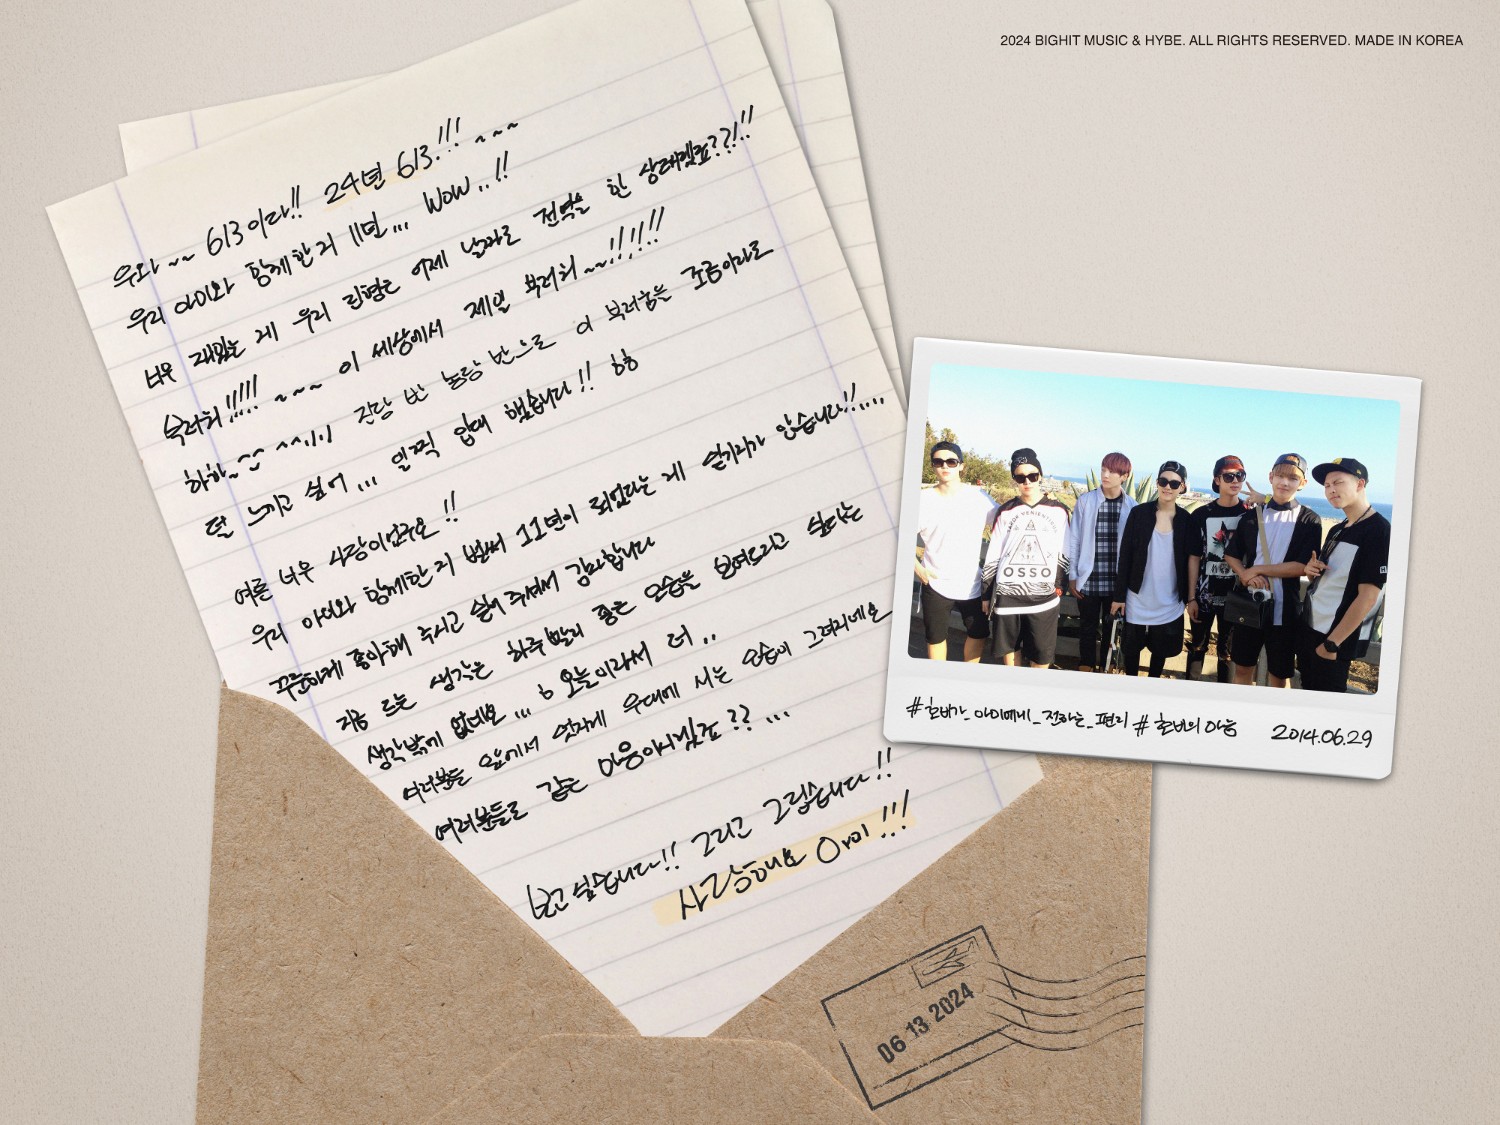 2024 BIGHIT MUSIC & HYBE. ALL RIGHTS RESERVED. MADE IN KOREA
우와~~ 613이다!! 24년 613.!!! ~~~
우리 아미와 함께한지 11년... WOW..!!
너무 재밌는 게 우리 진형은 어제 날짜로 전역을 한 상태겠죠??!!!
부러워!!!!! ~~~~ 이 세상에서 제일 부러워~~!!!!!!
하하~ 간당 반 농담 반으로 이 부러움을 조금이라도
덜 느끼고 싶어... 일찍 입대 했습니다!! ㅎㅎ
여름 너무 사랑이었구요!!
우리 아미와 함께한지 벌써 11년이 되었다는 게 믿기지가 않습니다!!....
꾸준하게 좋아해 주시고 믿어 주셔서 감사합니다
지금 드는 생각은 하루빨리 좋은 모습을 보여드리고 싶다는
생각밖에 없네요... ㅎ 오늘이라서 더..
여러분들 앞에서 멋지게 무대에 서는 모습이 그려지네요
여러분들도 같은 마음이시겠죠??...
보고싶습니다!! 그리고 그립습니다!!
사랑해요 아미!!!
#호비가_아미에게_전하는_편지 #호비의마음 2014.06.29
06 13 2024